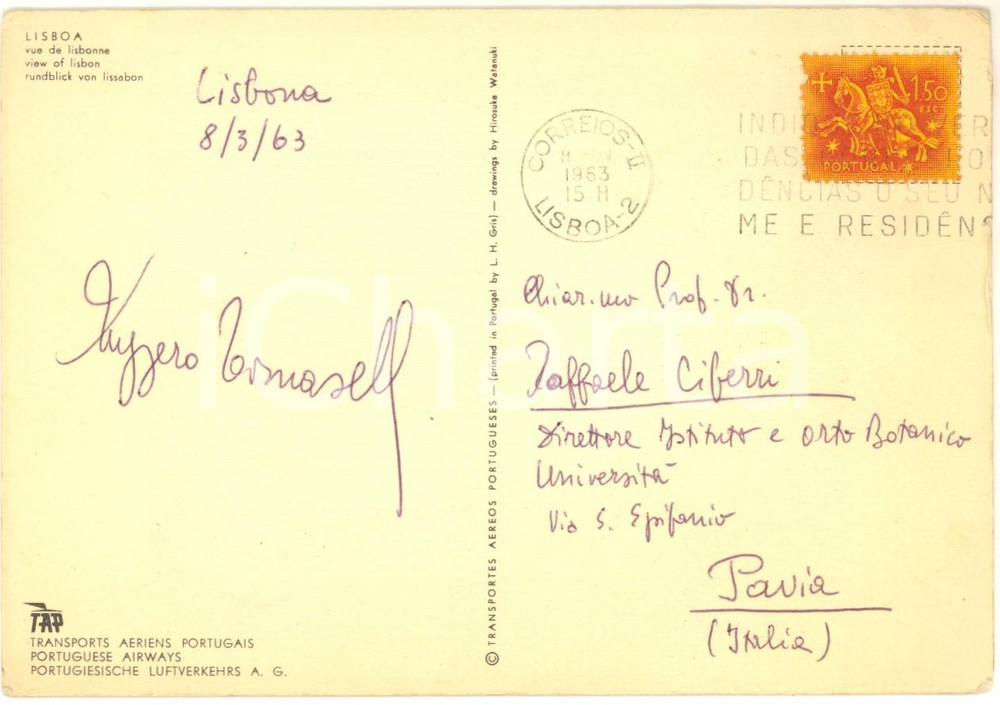 LISBOA
vue de lisbonne
view of lisbon
rundblick von lissabon
Lisbona
8/3/63
Ruggero Tomaselli
TAP
TRANSPORTS AERIENS PORTUGAIS
PORTUGUESE AIRWAYS
PORTUGIESISCHE LUFTVERKEHRS A. G.
© TRANSPORTES AEREOS PORTUGUESES — (printed in Portugal by L. H. Gris) — drawings by Hirosuke Watanuki
CORREIOS-II
1963
15 H
LISBOA-2
DAS
DÊNCIAS O SEU N
ME E RESIDÊN
1$50
ESC.
PORTUGAL
Chiar.mo Prof. Dr.
Raffaele Ciferri
Direttore Istituto e Orto Botanico
Università
Via S. Epifanio
Pavia
(Italia)
iCharta